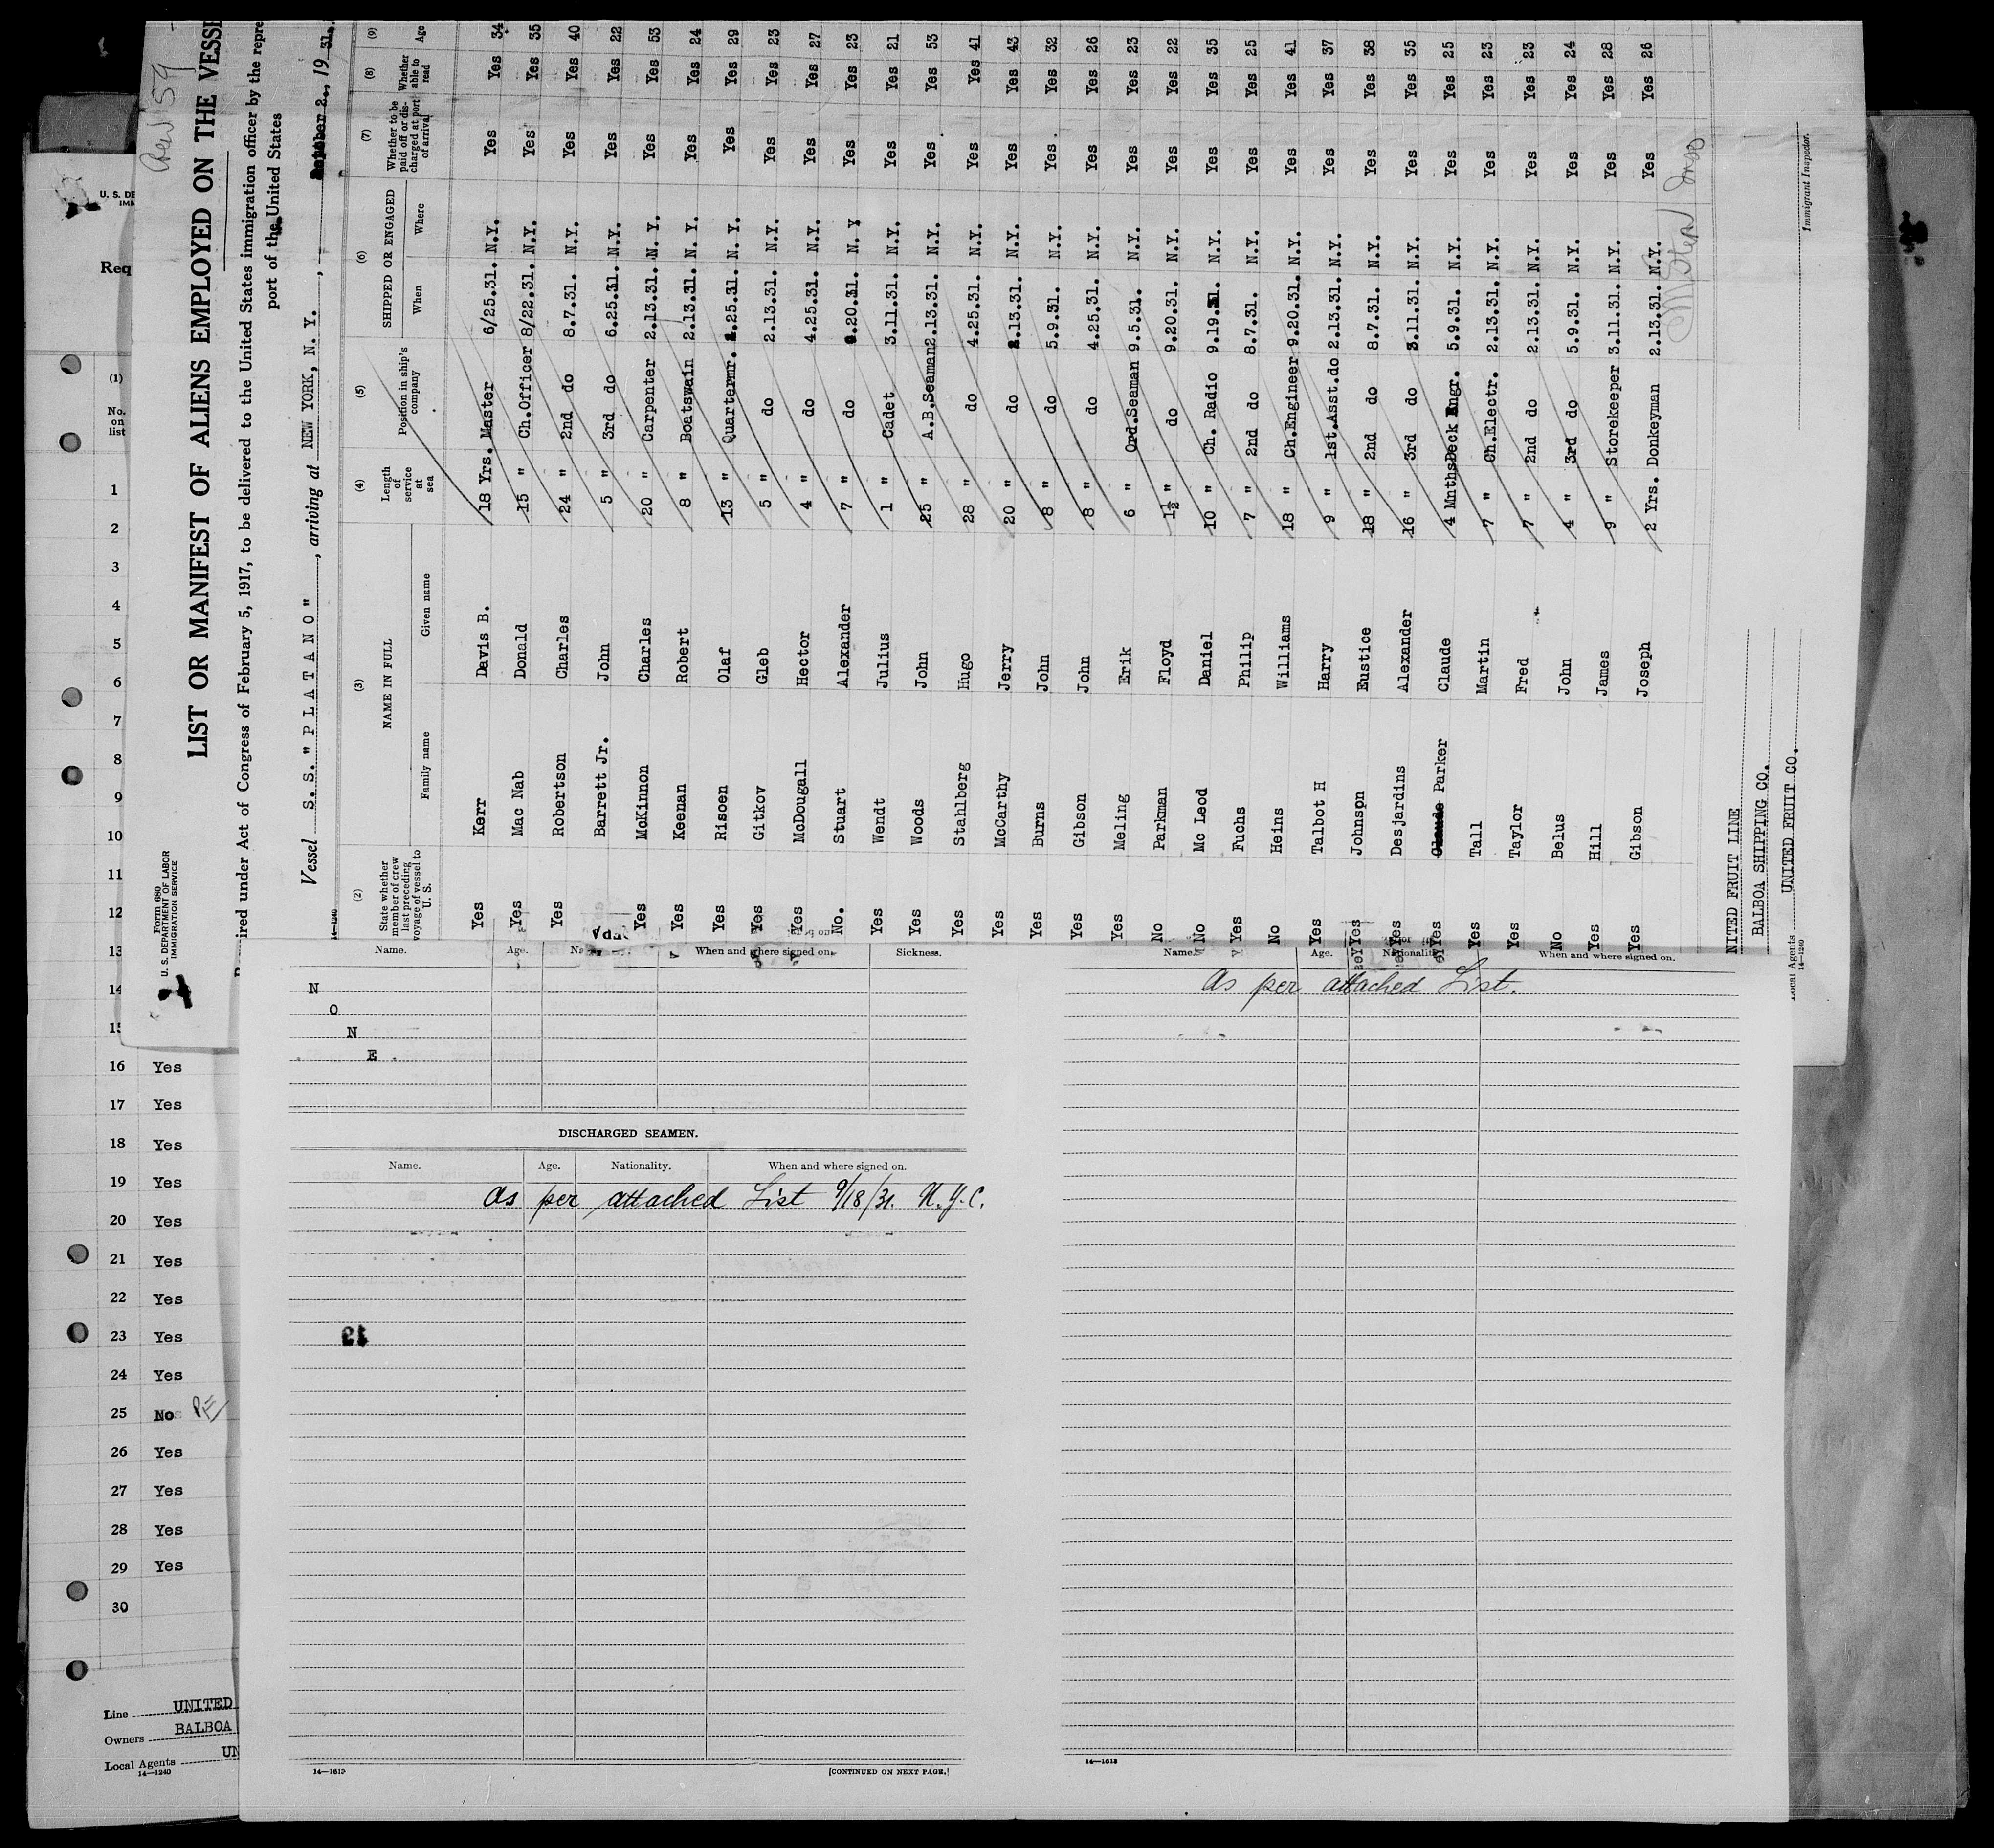 Crew 59
LIST OR MANIFEST OF ALIENS EMPLOYED ON THE VESSE
ired under Act of Congress of February 5, 1917, to be delivered to the United States immigration officer by the repre
port of the United States
Vessel S.S. "PLATANO", arriving at NEW YORK, N. Y., 2., 1931.
Form 680
U. S. DEPARTMENT OF LABOR
IMMIGRATION SERVICE
14-1240
(2) (3) (4) (5) (6) (7) (8) (9)
State whether member of crew last preceding voyage of vessel to U. S. NAME IN FULL Length of service at sea Position in ship's company SHIPPED OR ENGAGED Whether to be paid off or discharged at port of arrival Whether able to read Age
Family name Given name When Where
Yes Kerr Davis B. 18 Yrs. Master 6/25.31. N.Y. Yes Yes 34
Yes Mac Nab Donald 15 " Ch.Officer 8/22.31. N.Y. Yes Yes 35
Yes Robertson Charles 24 " 2nd do 8.7.31. N.Y. Yes Yes 40
Barrett Jr. John 5 " 3rd do 6.25.31. N.Y. Yes Yes 22
Yes McKinnon Charles 20 " Carpenter 2.13.31. N. Y. Yes Yes 53
Yes Keenan Robert 8 " Boatswain 2.13.31. N. Y. Yes Yes 24
Yes Risoen Olaf 13 " Quartermr. .25.31. N. Y. Yes Yes 29
Yes Gitkov Gleb 5 " do 2.13.31. N.Y. Yes Yes 23
Yes McDougall Hector 4 " do 4.25.31. N.Y. Yes Yes 27
No. Stuart Alexander 7 " do 9.20.31. N. Y Yes Yes 23
Yes Wendt Julius 1 " Cadet 3.11.31. N.Y. Yes Yes 21
Yes Woods John 25 " A.B.Seaman 2.13.31. N.Y. Yes Yes 53
Yes Stahlberg Hugo 28 " do 4.25.31. N.Y. Yes Yes 41
Yes McCarthy Jerry 20 " do 2.13.31. N.Y. Yes Yes 43
Yes Burns John 8 " do 5.9.31. N.Y. Yes Yes 32
Yes Gibson John 8 " do 4.25.31. N.Y. Yes Yes 26
Yes Meling Erik 6 " Ord.Seaman 9.5.31. N.Y. Yes Yes 23
No Parkman Floyd 1½ " do 9.20.31. N.Y. Yes Yes 22
No Mc Leod Daniel 10 " Ch. Radio 9.19.31. N.Y. Yes Yes 35
Yes Fuchs Philip 7 " 2nd do 8.7.31. N.Y. Yes Yes 25
No Heins Williams 18 " Ch.Engineer 9.20.31. N.Y. Yes Yes 41
Yes Talbot H Harry 9 " 1st.Asst.do 2.13.31. N.Y. Yes Yes 37
Yes Johnson Eustice 18 " 2nd do 8.7.31. N.Y. Yes Yes 38
Yes Desjardins Alexander 16 " 3rd do 3.11.31. N.Y. Yes Yes 35
Yes Parker Claude 4 Mnths Deck Engr. 5.9.31. N.Y. Yes Yes 25
Yes Tall Martin 7 " Ch.Electr. 2.13.31. N.Y. Yes Yes 23
Yes Taylor Fred 7 " 2nd do 2.13.31. N.Y. Yes Yes 23
No Belus John 4 " 3rd do 5.9.31. N.Y. Yes Yes 24
Yes Hill James 9 " Storekeeper 3.11.31. N.Y. Yes Yes 28
Yes Gibson Joseph 2 Yrs. Donkeyman 2.13.31. N.Y. Yes Yes 26
NITED FRUIT LINE
BALBOA SHIPPING CO.
Local Agents UNITED FRUIT CO.
14-1240
Immigrant Inspector.
U. S. DE
IMM
Req
(1)
No. on list
1
2
3
4
5
6
7
8
9
10
11
12
13
14
15
16 Yes
17 Yes
18 Yes
19 Yes
20 Yes
21 Yes
22 Yes
23 Yes
24 Yes
25 No
26 Yes
27 Yes
28 Yes
29 Yes
30
Line UNITED
Owners BALBOA
Local Agents UN
14-1240
Name. Age. When and where signed on. Sickness.
N
O
N
E .
DISCHARGED SEAMEN.
Name. Age. Nationality. When and where signed on.
As per attached List 9/18/31. N.Y.C.
14-1613
[CONTINUED ON NEXT PAGE.]
Name. Age. Nationality. When and where signed on.
As per attached List.
14-1613